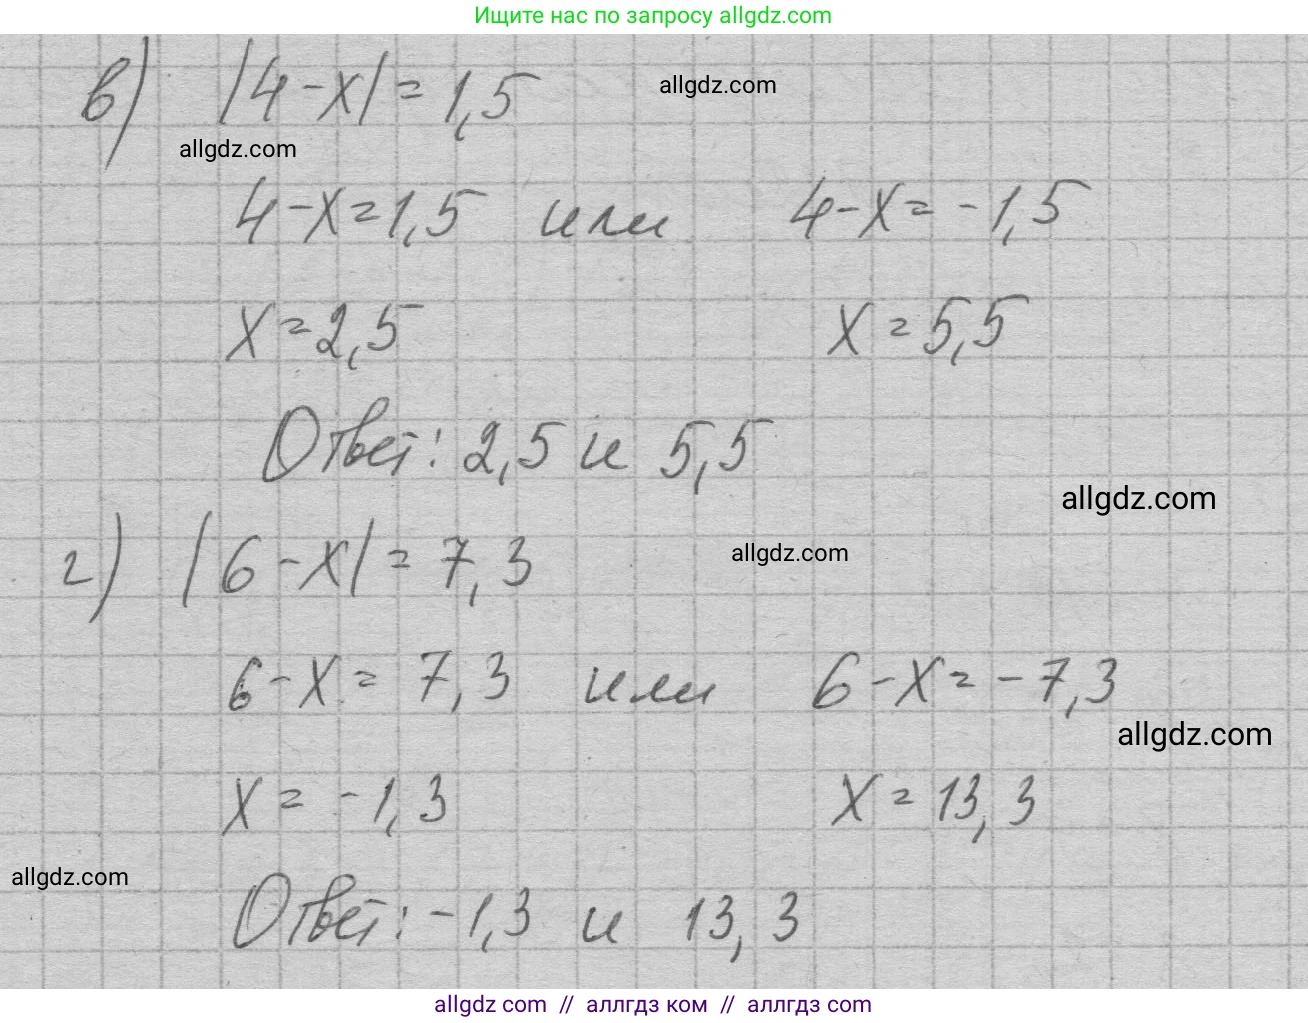 Ищите нас по запросу allgdz.com
в) |4-x| = 1,5
allgdz.com
allgdz.com
4-x=1,5 или 4-x= -1,5
x=2,5 x=5,5
Ответ: 2,5 и 5,5
allgdz.com
г) |6-x| = 7,3
allgdz.com
6-x= 7,3 или 6-x= -7,3
allgdz.com
x= -1,3 x=13,3
allgdz.com
Ответ: -1,3 и 13,3
allgdz com // аллгдз ком // аллгдз com